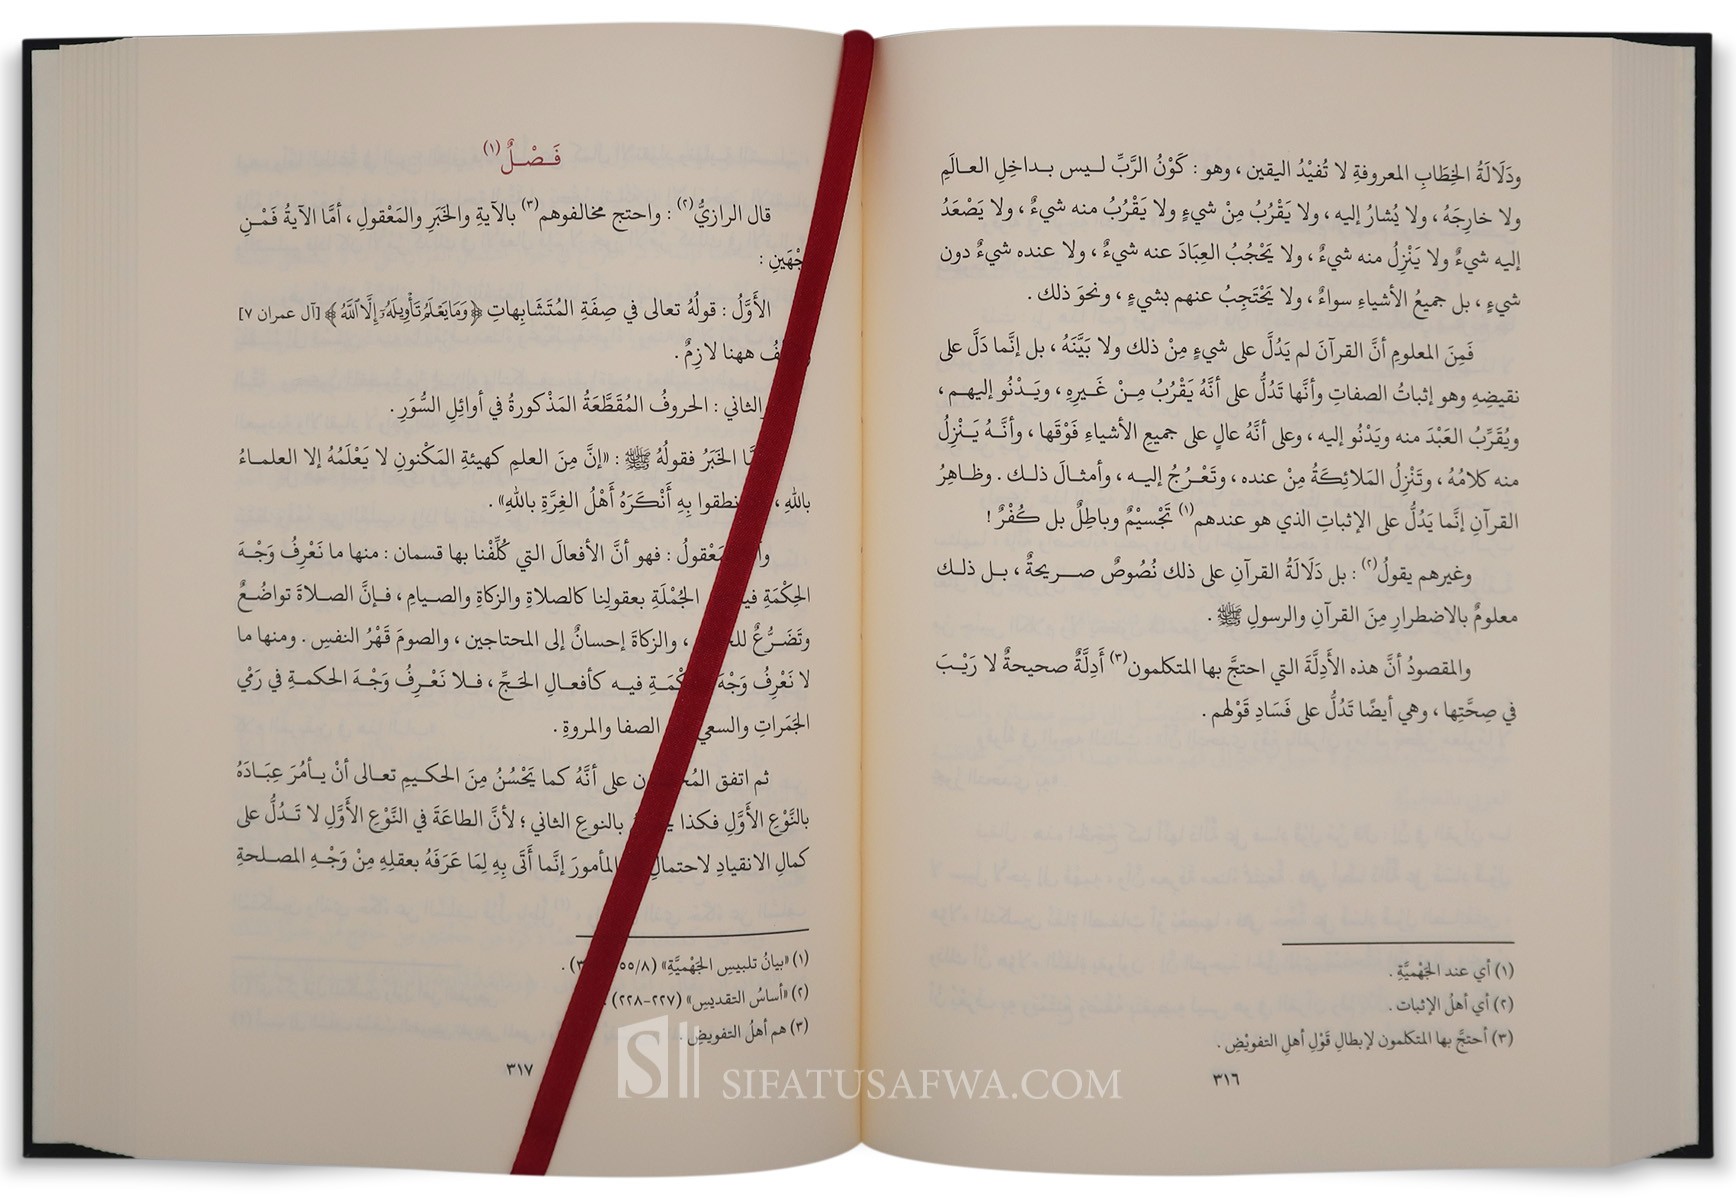 ودَلَالَةُ الخِطَابِ المعروفةِ لا تُفيْدُ اليقين ، وهو : كَوْنُ الرَّبِّ ليس بداخِلِ العالَمِ
ولا خارِجَهُ ، ولا يُشارُ إليه ، ولا يَقْرُبُ مِنْ شيءٍ ولا يَقْرُبُ منه شيءٌ ، ولا يَصْعَدُ
إليه شيءٌ ولا يَنْزِلُ منه شيءٌ ، ولا يَحْجُبُ العِبَادَ عنه شيءٌ ، ولا عنده شيءٌ دون
شيءٍ ، بل جميعُ الأشياءِ سواءٌ ، ولا يَحْتَجِبُ عنهم بشيءٍ ، ونحوَ ذلك .
فَمِنَ المعلومِ أنَّ القرآنَ لم يَدُلَّ على شيءٍ مِنْ ذلك ولا بَيَّنَهُ ، بل إنَّما دَلَّ على
نقيضِهِ وهو إثباتُ الصفاتِ وأنَّها تَدُلُّ على أنَّهُ يَقْرُبُ مِنْ غَيرِهِ ، ويَدْنُو إليهم ،
ويُقَرِّبُ العَبْدَ منه ويَدْنُو إليه ، وعلى أنَّهُ عالٍ على جميعِ الأشياءِ فَوْقَها ، وأنَّهُ يَنْزِلُ
منه كلامُهُ ، وتَنْزِلُ المَلائِكَةُ مِنْ عنده ، وتَعْرُجُ إليه ، وأمثالَ ذلك . وظاهِرُ
القرآنِ إنَّما يَدُلُّ على الإثباتِ الذي هو عندهم(١) تَجْسيْمٌ وباطِلٌ بل كُفْرٌ !
وغيرهم يقولُ(٢) : بل دَلَالَةُ القرآنِ على ذلك نُصُوصٌ صريحةٌ ، بل ذلك
معلومٌ بالاضطرارِ مِنَ القرآنِ والرسولِ ﷺ .
والمقصودُ أنَّ هذه الأَدِلَّةَ التي احتجَّ بها المتكلمون(٣) أَدِلَّةٌ صحيحةٌ لا رَيْبَ
في صِحَّتِها ، وهي أيضًا تَدُلُّ على فَسَادِ قَوْلهم .
(١) أي عند الجَهْميَّةِ .
(٢) أي أهلُ الإثبات .
(٣) أحتجَّ بها المتكلمون لإبطالِ قَوْلِ أهلِ التفويْضِ .
٣١٦
فَصْلٌ(١)
قال الرازيُّ(٢) : واحتج مخالفوهم(٣) بالآيةِ والخَبَرِ والمَعْقولِ ، أمَّا الآيةُ فَمْنِ
جْهَينِ :
الأَوَّلُ : قولُهُ تعالى في صِفَةِ المُتَشَابِهاتِ ﴿وَمَا يَعْلَمُ تَأْوِيلَهُۥٓ إِلَّا ٱللَّهُ﴾ [آل عمران ٧]
ههنا لازِمٌ .
الثاني : الحروفُ المُقَطَّعَةُ المَذْكورةُ في أوائِلِ السُّوَرِ .
الخَبَرُ فقولُهُ ﷺ : «إنَّ مِنَ العلمِ كهيئةِ المَكْنونِ لا يَعْلَمُهُ إلا العلماءُ
باللهِ ، نطقوا بِهِ أَنْكَرَهُ أَهْلُ الغِرَّةِ باللهِ» .
مَعْقولُ : فهو أنَّ الأفعالَ التي كُلِّفْنا بها قسمان : منها ما نَعْرِفُ وَجْهَ
الحِكْمَةِ الجُمْلَةِ بعقولِنا كالصلاةِ والزكاةِ والصيامِ ، فإنَّ الصلاةَ تواضُعٌ
وتَضَرُّعٌ ، والزكاةَ إحسانٌ إلى المحتاجين ، والصومَ قَهْرُ النفسِ . ومنها ما
لا نَعْرِفُ وَجْهَ فيه كأفعالِ الحَجِّ ، فلا نَعْرِفُ وَجْهَ الحكمةِ في رَمْيِ
الجَمَراتِ والسعي الصفا والمروةِ .
ثم اتفق على أنَّهُ كما يَحْسُنُ مِنَ الحكيمِ تعالى أنْ يأمُرَ عِبَادَهُ
بالنَّوْعِ الأَوَّلِ فكذا بالنوعِ الثاني ؛ لأنَّ الطاعَةَ في النَّوْعِ الأَوَّلِ لا تَدُلُّ على
كمالِ الانقيادِ لاحتمالِ المأمورَ إنَّما أَتَى بِهِ لِمَا عَرَفَهُ بعقلِهِ مِنْ وَجْهِ المصلحةِ
(١) «بيانُ تلبيسِ الجَهْميَّةِ»
(٢) «أساسُ التقديسِ» (٢٢٧-٢٢٨) .
(٣) هم أهلُ التفويضِ .
٣١٧
SIFATUSAFWA.COM